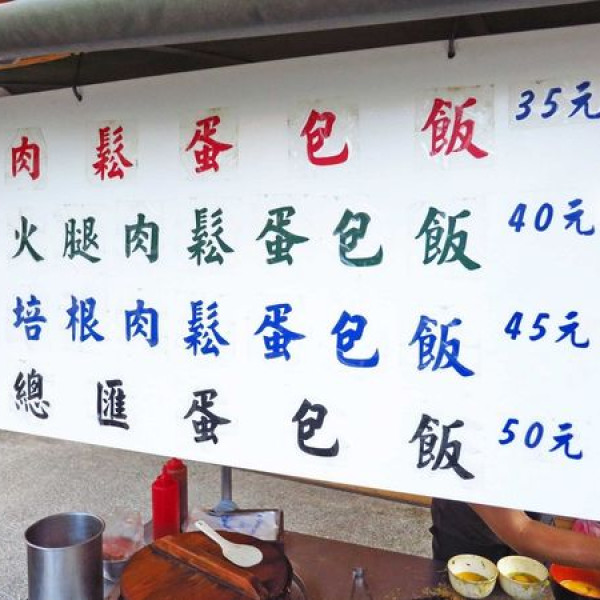 肉鬆蛋包飯 35元
火腿肉鬆蛋包飯 40元
培根肉鬆蛋包飯 45元
總匯蛋包飯 50元